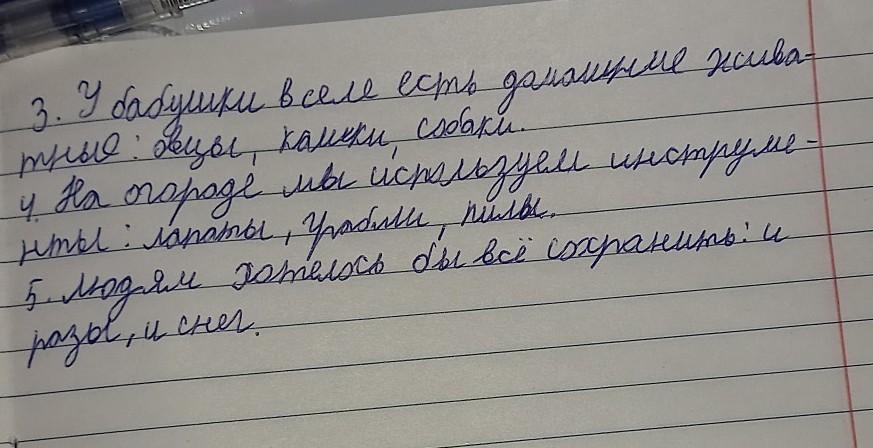 3. У бабушки в селе есть домашние жива-
тные: овцы, кошки, собаки.
4. На огороде мы используем инструме-
нты: лопаты, грабли, пилы.
5. Людям хотелось бы всё сохранить: и
розы, и снег.